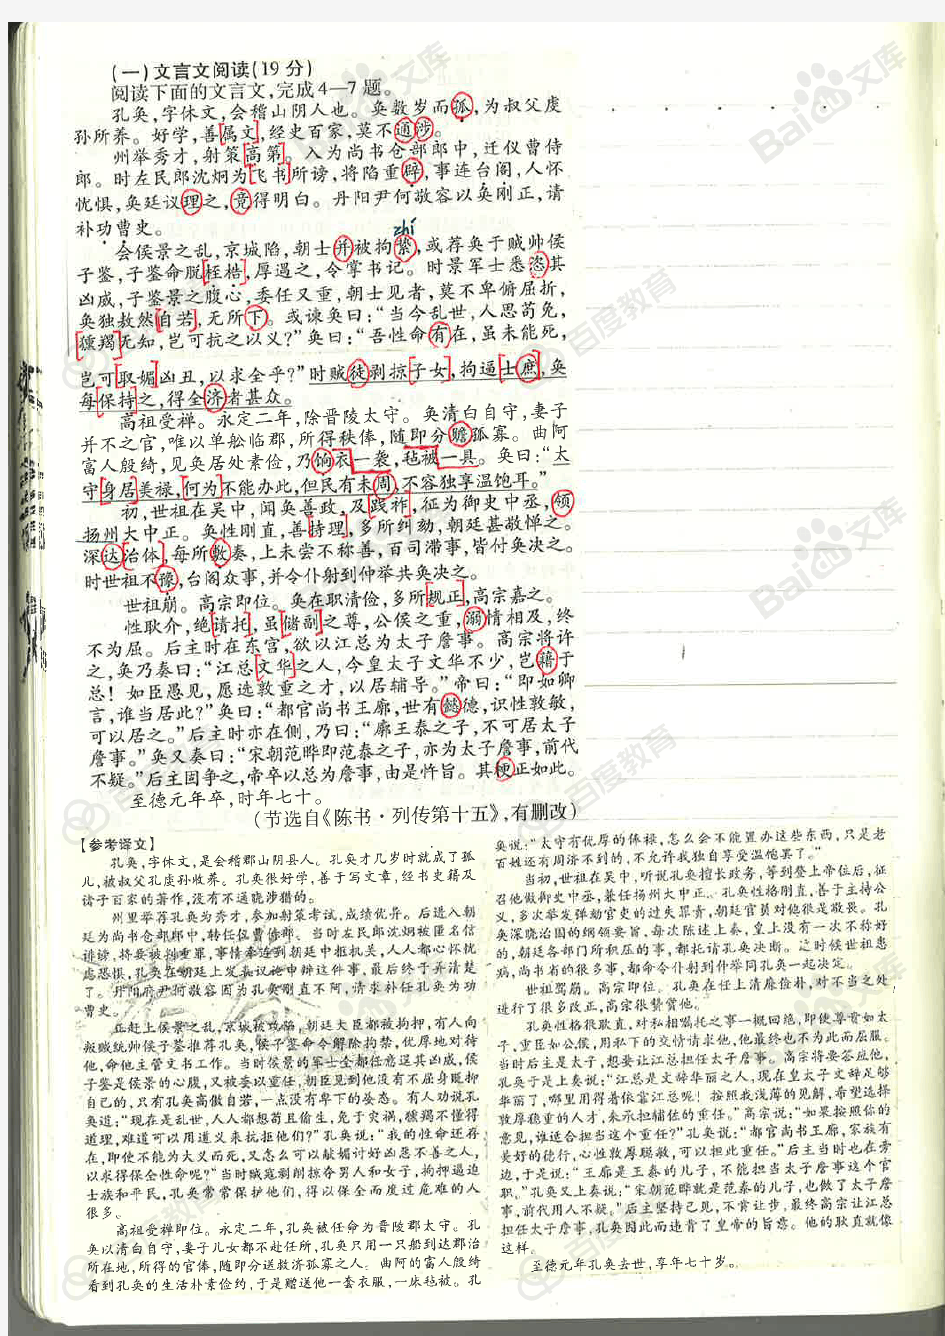 (一)文言文阅读(19分)
阅读下面的文言文,完成4—7题。
孔奂,字休文,会稽山阴人也。奂数岁而孤,为叔父虔
孙所养。好学,善属文,经史百家,莫不通涉。
州举秀才,射策高第。入为尚书仓部郎中,迁仪曹侍
郎。时左民郎沈炯为飞书所谤,将陷重辟,事连台阁,人怀
忧惧,奂廷议理之,竟得明白。丹阳尹何敬容以奂刚正,请
补功曹史。
zhí
会侯景之乱,京城陷,朝士并被拘絷,或荐奂于贼帅侯
子鉴,子鉴命脱桎梏,厚遇之,令掌书记。时景军士悉恣其
凶威,子鉴景之腹心,委任又重,朝士见者,莫不卑俯屈折,
奂独敖然自若,无所下。或谏奂曰:“当今乱世,人思苟免,
獯羯无知,岂可抗之以义?”奂曰:“吾性命有在,虽未能死,
岂可取媚凶丑,以求全乎?”时贼徒剥掠子女,拘逼士庶,奂
每保持之,得全济者甚众。
高祖受禅。永定二年,除晋陵太守。奂清白自守,妻子
并不之官,唯以单舩临郡,所得秩俸,随即分赡孤寡。曲阿
富人殷绮,见奂居处素俭,乃饷衣一袭,毡被一具。奂曰:“太
守身居美禄,何为不能办此,但民有未周,不容独享温饱耳。”
初,世祖在吴中,闻奂善政,及践祚,征为御史中丞,领
扬州大中正。奂性刚直,善持理,多所纠劾,朝廷甚敬惮之。
深达治体,每所敷奏,上未尝不称善,百司滞事,皆付奂决之。
时世祖不豫,台阁众事,并令仆射到仲举共奂决之。
世祖崩。高宗即位。奂在职清俭,多所规正,高宗嘉之。
性耿介,绝请托,虽储副之尊,公侯之重,溺情相及,终
不为屈。后主时在东宫,欲以江总为太子詹事。高宗将许
之,奂乃奏曰:“江总文华之人,今皇太子文华不少,岂藉于
总!如臣愚见,愿选敦重之才,以居辅导。”帝曰:“即如卿
言,谁当居此?”奂曰:“都官尚书王廓,世有懿德,识性敦敏,
可以居之。”后主时亦在侧,乃曰:“廓王泰之子,不可居太子
詹事。”奂又奏曰:“宋朝范晔即范泰之子,亦为太子詹事,前代
不疑。”后主固争之,帝卒以总为詹事,由是忤旨。其梗正如此。
至德元年卒,时年七十。
(节选自《陈书·列传第十五》,有删改)
【参考译文】
孔奂,字休文,是会稽郡山阴县人。孔奂才几岁时就成了孤
儿,被叔父孔虔孙收养。孔奂很好学,善于写文章,经书史籍及
诸子百家的著作,没有不通晓涉猎的。
州里举荐孔奂为秀才,参加射策考试,成绩优异。后进入朝
廷为尚书仓部郎中,转任仪曹侍郎。当时左民郎沈炯被匿名信
诽谤,将要被判重罪,事情牵连到朝廷中枢机关,人人都心怀忧
虑恐惧,孔奂在朝廷上发表议论申辩这件事,最后终于弄清楚
了。丹阳府尹何敬容因为孔奂刚直不阿,请求补任孔奂为功
曹史。
正赶上侯景之乱,京城被攻陷,朝廷大臣都被拘押,有人向
叛贼统帅侯子鉴推荐孔奂,侯子鉴命令解除拘禁,优厚地对待
他,命他主管文书工作。当时侯景的军士全都任意逞其凶威,侯
子鉴是侯景的心腹,又被委以重任,朝臣见到他没有不屈身贬抑
自己的,只有孔奂高傲自若,一点没有卑下的姿态。有人劝说孔
奂道:“现在是乱世,人人都想苟且偷生,免于灾祸,獯羯不懂得
道理,难道可以用道义来抗拒他们?”孔奂说:“我的性命还存
在,即使不能为大义而死,又怎么可以献媚讨好凶恶不善之人,
以求得保全性命呢?”当时贼寇剥削掠夺男人和女子,拘押逼迫
士族和平民,孔奂常常保护他们,得以保全而度过危难的人
很多。
高祖受禅即位。永定二年,孔奂被任命为晋陵郡太守。孔
奂以清白自守,妻子儿女都不赴任所,孔奂只用一只船到达郡治
所在地,所得的官俸,随即分送救济孤寡之人。曲阿的富人殷绮
看到孔奂的生活朴素俭约,于是赠送他一套衣服,一床毡被。孔
奂说:“太守有优厚的俸禄,怎么会不能置办这些东西,只是老
百姓还有周济不到的,不允许我独自享受温饱罢了。”
当初,世祖在吴中,听说孔奂擅长政务,等到登上帝位后,征
召他做御史中丞,兼任扬州大中正。孔奂性格刚直,善于主持公
义,多次举发弹劾官吏的过失罪责,朝廷官员对他很是敬畏。孔
奂深晓治国的纲领要旨,每次陈述上奏,皇上没有一次不称好
的,朝廷各部门所积压的事,都托请孔奂决断。这时候世祖患
病,尚书省的很多事,都命令仆射到仲举同孔奂一起决定。
世祖驾崩。高宗即位。孔奂在任上清廉俭朴,对不当之处
进行了很多改正,高宗很赞赏他。
孔奂性格很耿直,对私相嘱托之事一概回绝,即使尊贵如太
子,重臣如公侯,用私下的交情请求他,他最终也不为此而屈服。
当时后主是太子,想要让江总担任太子詹事。高宗将要答应他,
孔奂于是上奏说:“江总是文辞华丽之人,现在皇太子文辞足够
华丽了,哪里用得着依靠江总呢!按照我浅薄的见解,希望选择
敦厚稳重的人才,来承担辅佐的重任。”高宗说:“如果按照你的
意见,谁适合担当这个重任?”孔奂说:“都官尚书王廓,家族有
美好的德行,心性敦厚聪敏,可以担此重任。”后主当时也在旁
边,于是说:“王廓是王泰的儿子,不能担当太子詹事这个官
职。”孔奂又上奏说:“宋朝范晔就是范泰的儿子,也做了太子詹
事,前代用人不疑。”后主坚持己见,不肯让步,最终高宗让江总
担任太子詹事,孔奂因此而违背了皇帝的旨意。他的耿直就像
这样。
至德元年孔奂去世,享年七十岁。